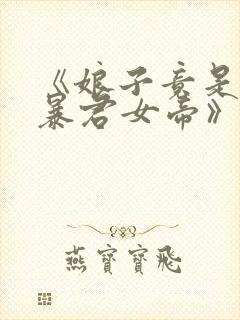 《娘子竟是
暴君女帝》
燕寶寶飛